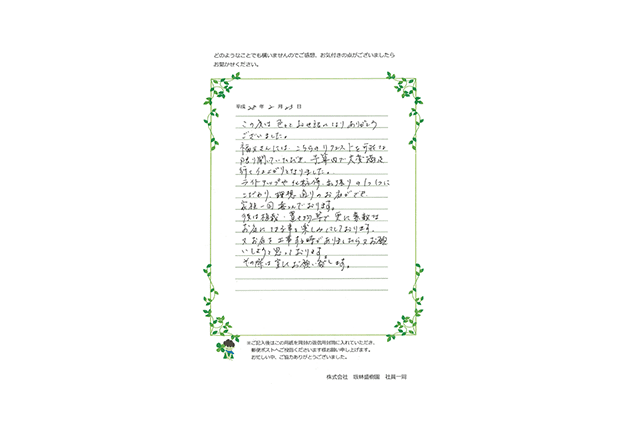 どのようなことでも構いませんのでご感想、お気付きの点がございましたら
お聞かせください。
平成 28 年 2 月 23 日
この度は色々とお世話になりありがとう
ございました。
さんには こちらのリクエストを可能な
限り聞いていただき、予算内で大変満足
行く仕上がりとなりました。
ライトアップや化粧 のひとつひとつに
こだわり、理想通りのお庭ができ、
家族一同喜んでおります。
今後は植栽・ 等で更に素敵な
お庭にする事を楽しみにしております。
又お庭を工事する時がありましたら又お願
いしようと思っております。
その際は宜しくお願い致します。
※ご記入後はこの用紙を同封の返信用封筒に入れていただき、
郵便ポストへご投函くださいます様お願い申し上げます。
お忙しい中、ご協力ありがとうございました。
株式会社 盛樹園 社員一同